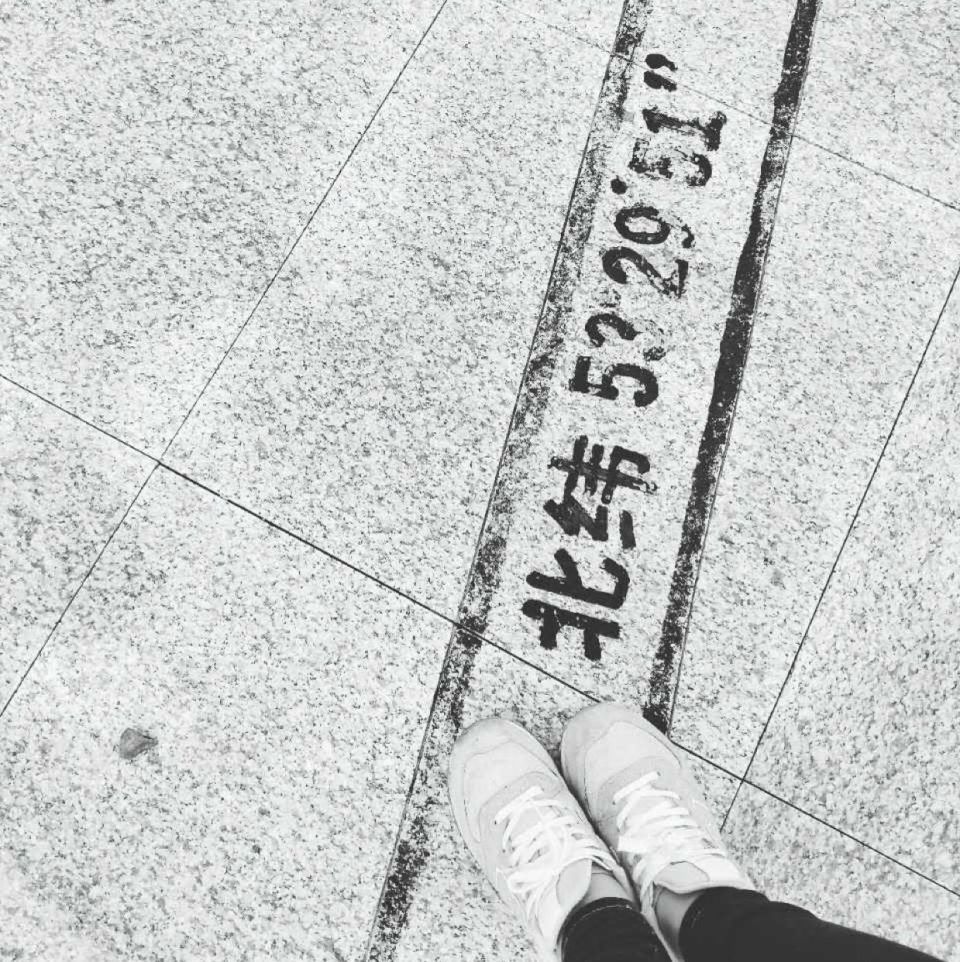 北纬 53°29'51"